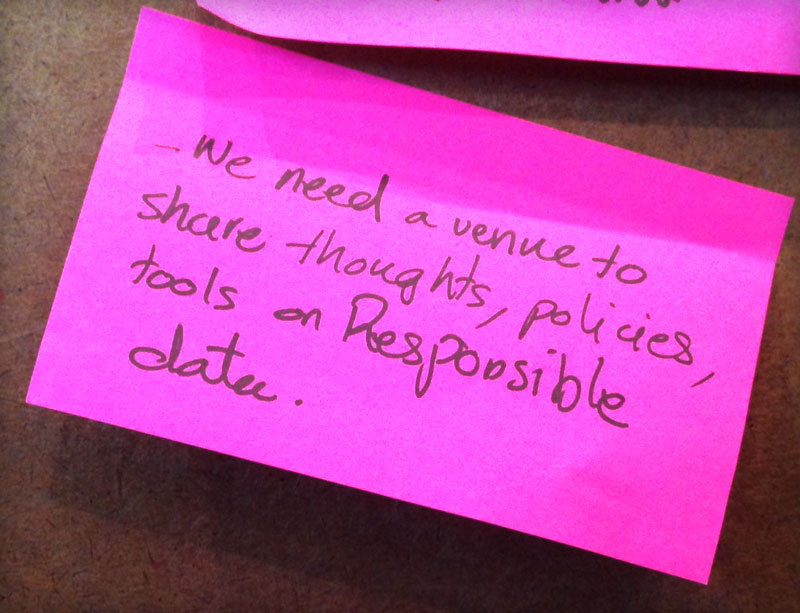 - We need a venue to
share thoughts, policies,
tools on Responsible
data.